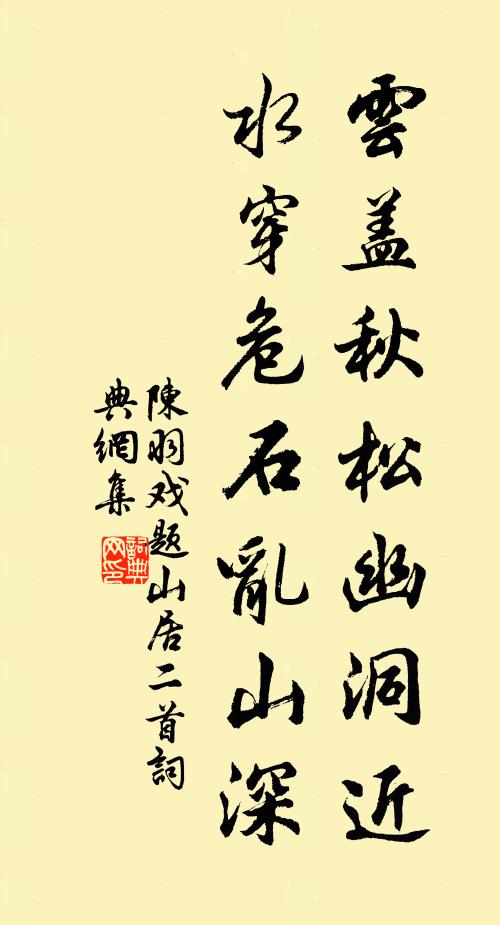 雲盖秋松幽洞近
水穿危石亂山深
陳羽戏题山居二首詞
典網集
詞典網印